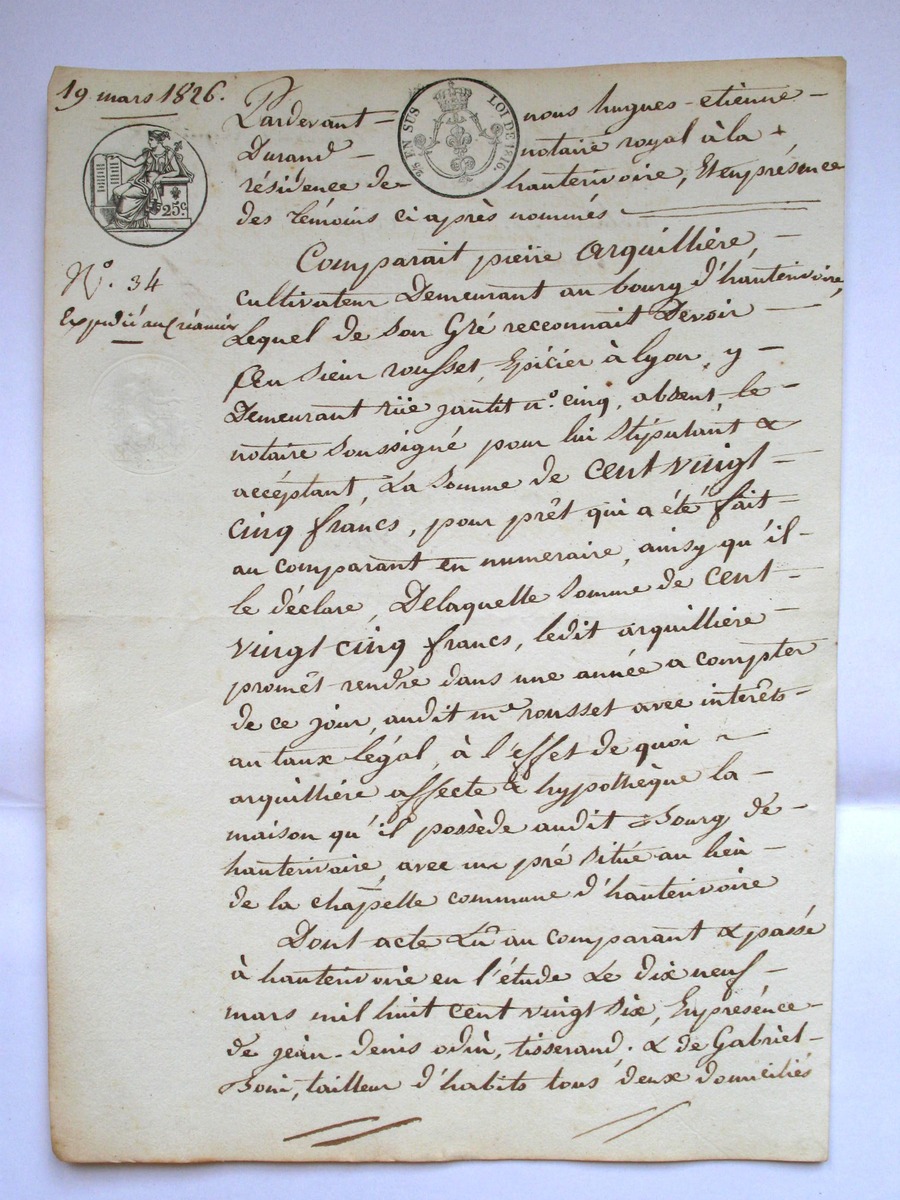 19 mars 1826.
25 EN SUS LOI DE 1816.
25c.
N°. 34
Expédié au Créancier
Pardevant - nous hugues - etienne -
Durand - notaire royal à la +
résidence de hauterivoire, Et en présence
des témoins ci après nommés
Comparait pierre arquillière, -
cultivateur Demeurant au bourg d'hauterivoire,
Lequel de son Gré reconnait Devoir -
au sieur rousset, Epicier à lyon, y -
Demeurant rüe n°. cinq, absent, le -
notaire soussigné pour lui stipulant &
accéptant, La somme de cent vingt -
cinq francs, pour prêt qui a été fait -
au comparant en numeraire, ainsy qu'il -
le déclare, Delaquelle somme de cent -
vingt cinq francs, ledit arquillière -
promêt rendre dans une année a compter
de ce jour, audit mr. rousset avec interêts -
au taux légal, à l'effet de quoi ~
arquillière affecte & hypothèque la -
maison qu'il possède audit Bourg de -
hauterivoire, avec un pré situé au lieu -
de la chapelle commune d'hauterivoire
Dont acte Lû au comparant & passé
à hauterivoire en l'étude Le dix neuf -
mars mil huit cent vingt six, En présence -
de jean - denis odin, tisserand. & de Gabriel -
tailleur d'habits tous deux domiciliés